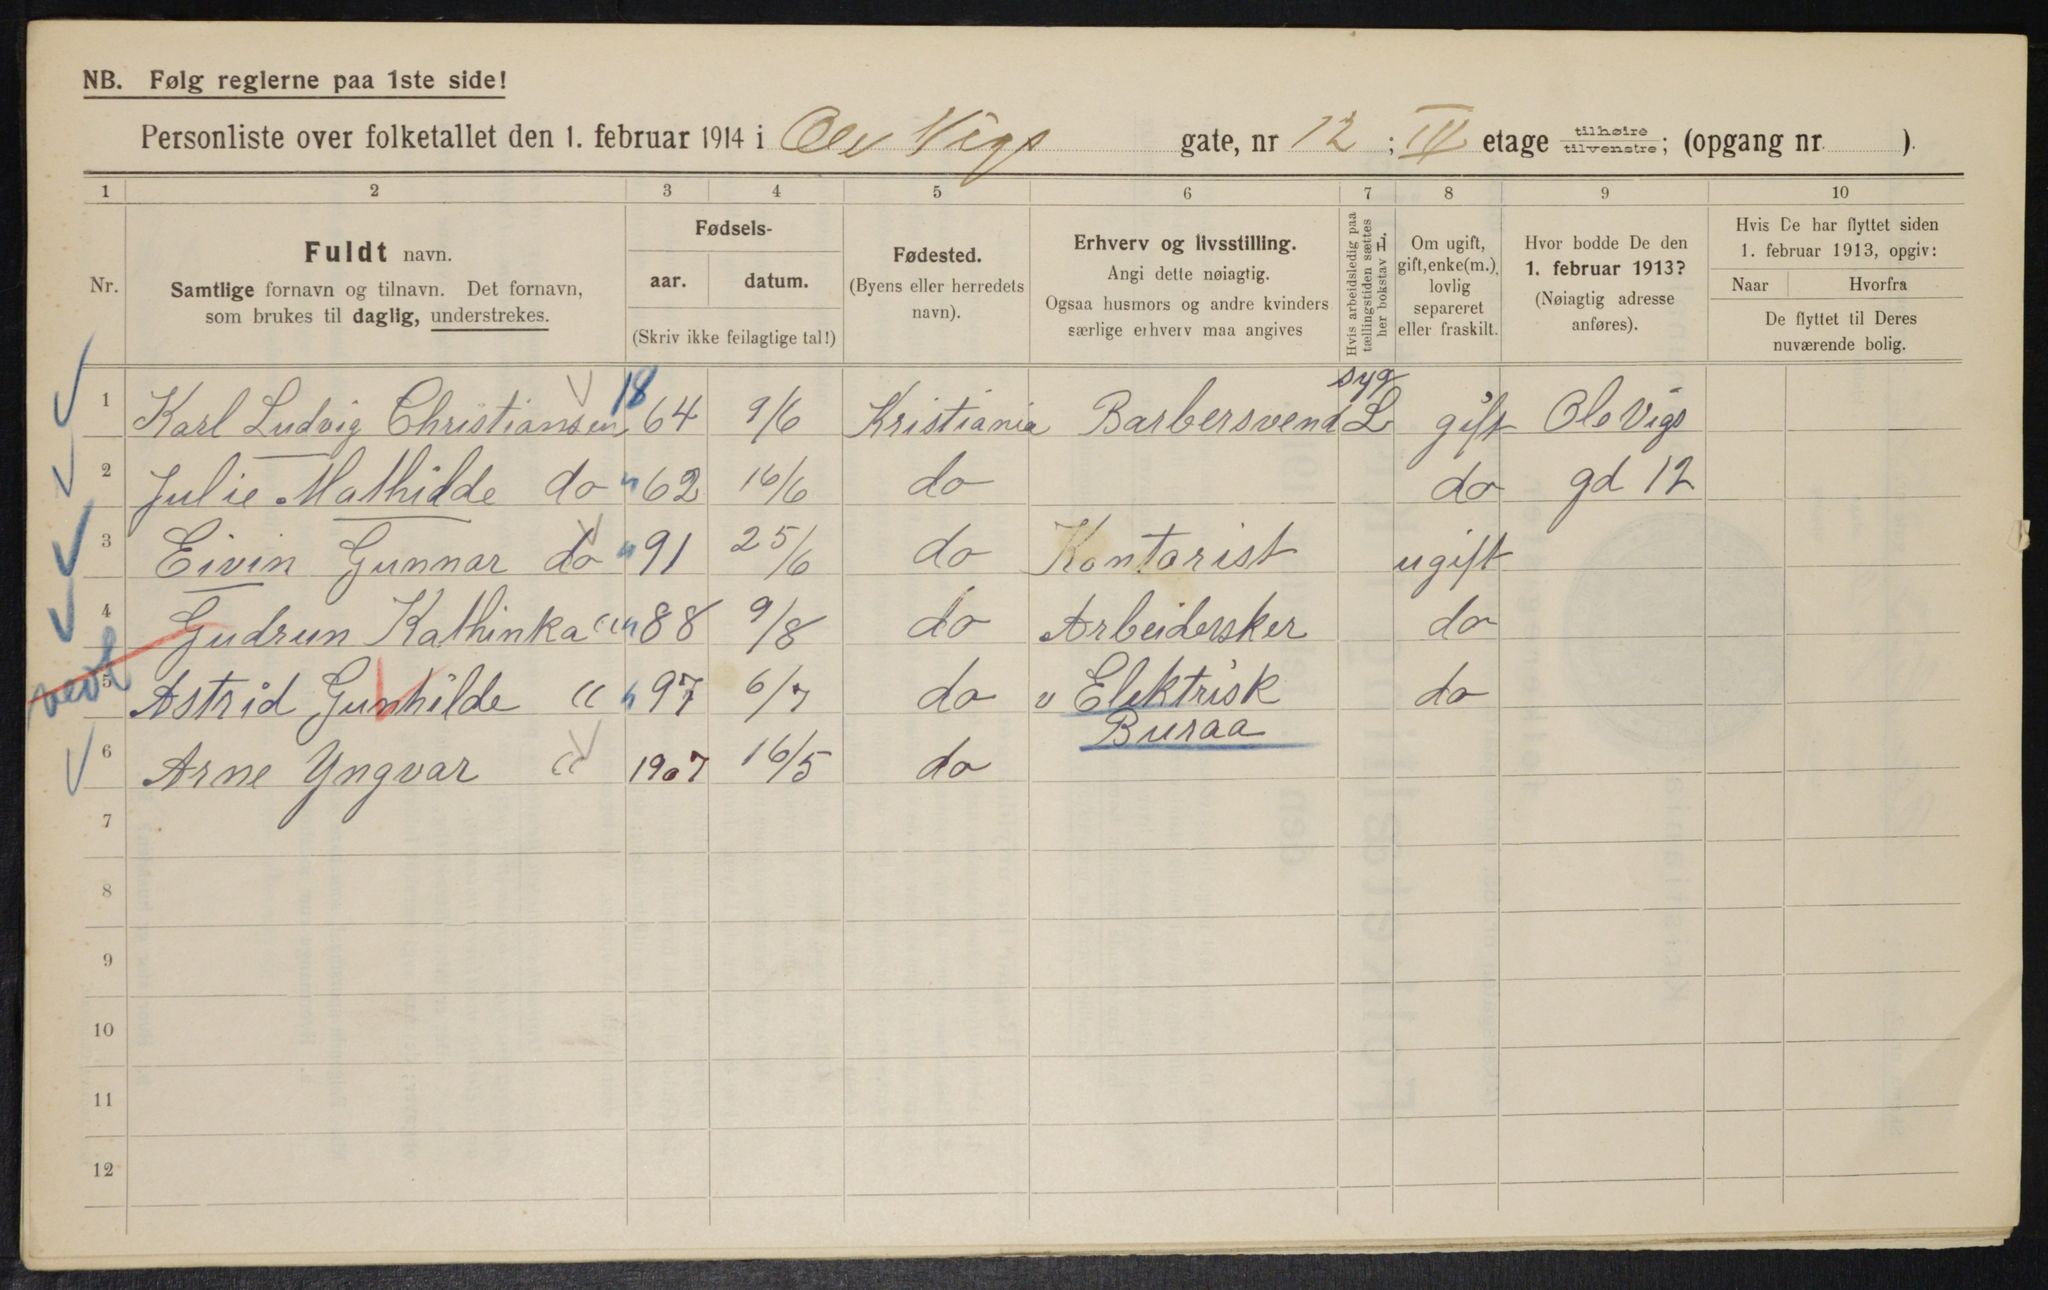 NB. Følg reglerne paa 1ste side!
Personliste over folketallet den 1. februar 1914 i Ole Vigs gate, nr 12 ; IV etage tilhøire tilvenstre; (opgang nr. ).
1 2 3 4 5 6 7 8 9 10
Nr.
Fuldt navn.
Samtlige fornavn og tilnavn. Det fornavn,
som brukes til daglig, understrekes.
Fødsels-
aar. datum.
(Skriv ikke feilagtige tal!)
Fødested.
(Byens eller herredets
navn).
Erhverv og livsstilling.
Angi dette nøiagtig.
Ogsaa husmors og andre kvinders
særlige erhverv maa angives
Hvis arbeidsledig paa
tællingstiden sættes
her bokstav L.
Om ugift,
gift, enke(m.),
lovlig
separeret
eller fraskilt.
Hvor bodde De den
1. februar 1913?
(Nøiagtig adresse
anføres).
Hvis De har flyttet siden
1. februar 1913, opgiv:
Naar Hvorfra
De flyttet til Deres
nuværende bolig.
1 Karl Ludvig Christiansen 18 64 9/6 Kristiania Barbersvend syg L gift Ole Vigs
2 Julie Mathilde do " 62 16/6 do do gd 12
3 Eivin Gunnar do " 91 25/6 do Kontorist ugift
4 Gudrun Kathinka " " 88 9/8 do Arbeidersker do
5 Astrid Gunhilde " " 97 6/7 do " Elektrisk do
Buraa
6 Arne Yngvar " 1907 16/5 do
7
8
9
10
11
12